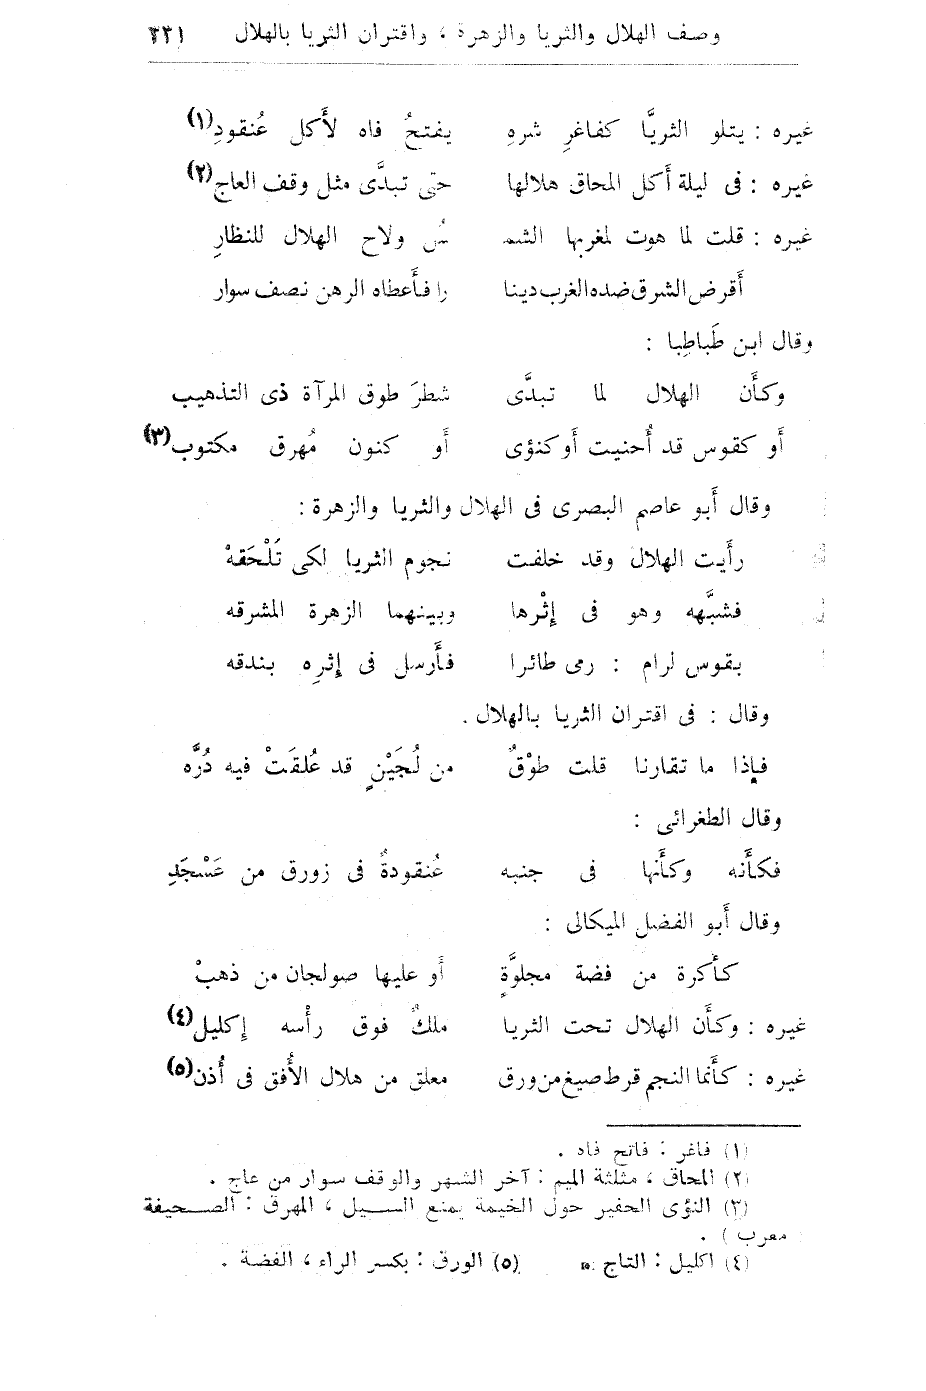 وصف الهلال والثريا والزهرة ، واقتران الثريا بالهلال ٢٢١
غيره : يتلو الثريَّا كفاغرِ شرهِ يفتحُ فاه لأَكل عُنقودِ(١)
غيره : فى ليلة أَكل المحاق هلالها حتى تبدَّى مثل وقف العاج(٢)
غيره : قلت لما هوت لمغربها الشمـ ـسُ ولاح الهلال للنظارِ
أَقرض الشرق ضده الغرب دينا را فأَعطاه الرهن نصف سوار
وقال ابن طَباطِبا :
وكأَن الهلال لما تبدَّى شطرَ طوق المرآة ذى التذهيب
أَو كقوس قد أُحنيت أَو كنؤى أَو كنون مُهرق مكتوب(٣)
وقال أَبو عاصم البصرى فى الهلال والثريا والزهرة :
رأَيت الهلال وقد خلفت نجوم الثريا لكى تَلْحَقهْ
فشبَّهه وهو فى إِثْرها وبينهما الزهرة المشرقه
بقوس لرام : رمى طائرا فأَرسل فى إِثرِه بندقه
وقال : فى اقتران الثريا بالهلال .
فإِذا ما تقارنا قلت طوْقٌ من لُجَيْنٍ قد عُلقَتْ فيه دُرَّه
وقال الطغرائى :
فكأَنه وكأَنها فى جنبه عُنقودةٌ فى زورق من عَسْجَدِ
وقال أَبو الفضل الميكالى :
كأَكرة من فضة مجلوَّةٍ أَو عليها صولجان من ذهبْ
غيره : وكأَن الهلال تحت الثريا ملكٌ فوق رأْسه إِكليل(٤)
غيره : كأَنما النجم قرط صيغ من ورق معلق من هلال الأُفق فى أُذن(٥)
(١) فاغر : فاتح فاه .
(٢) المحاق ، مثلثة الميم : آخر الشهر والوقف سوار من عاج .
(٣) النؤى الحفير حول الخيمة يمنع السيل ، المهرق : الصحيفة
معرب ) .
(٤) اكليل : التاج (٥) الورق : بكسر الراء ، الفضة .